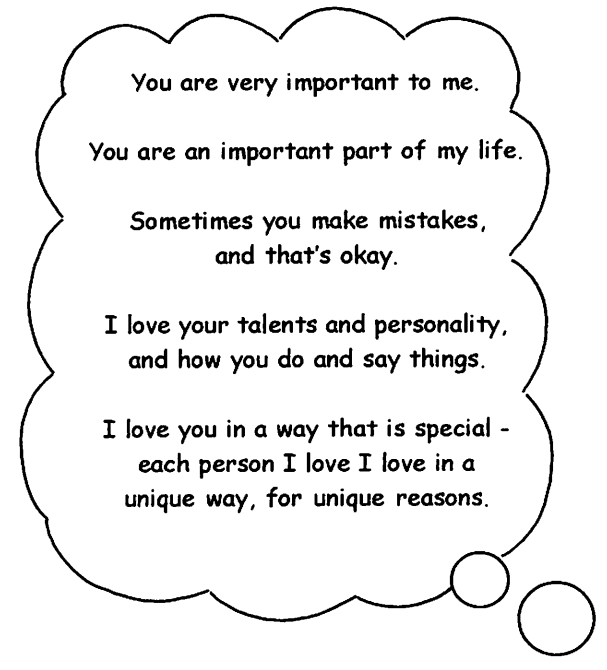 You are very important to me.
You are an important part of my life.
Sometimes you make mistakes,
and that's okay.
I love your talents and personality,
and how you do and say things.
I love you in a way that is special -
each person I love I love in a
unique way, for unique reasons.